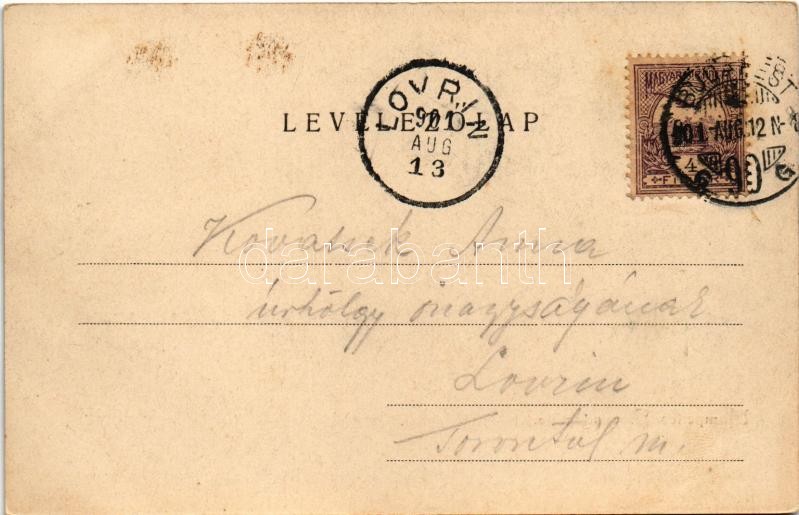 LOVRIN
901
AUG
13
LEVELEZŐLAP
MAGYAR
901 AUG. 12 N
4
90
Kovatsek Anna
darabanth
úrhölgy őnagyságának
Lovrin
Torontál m.